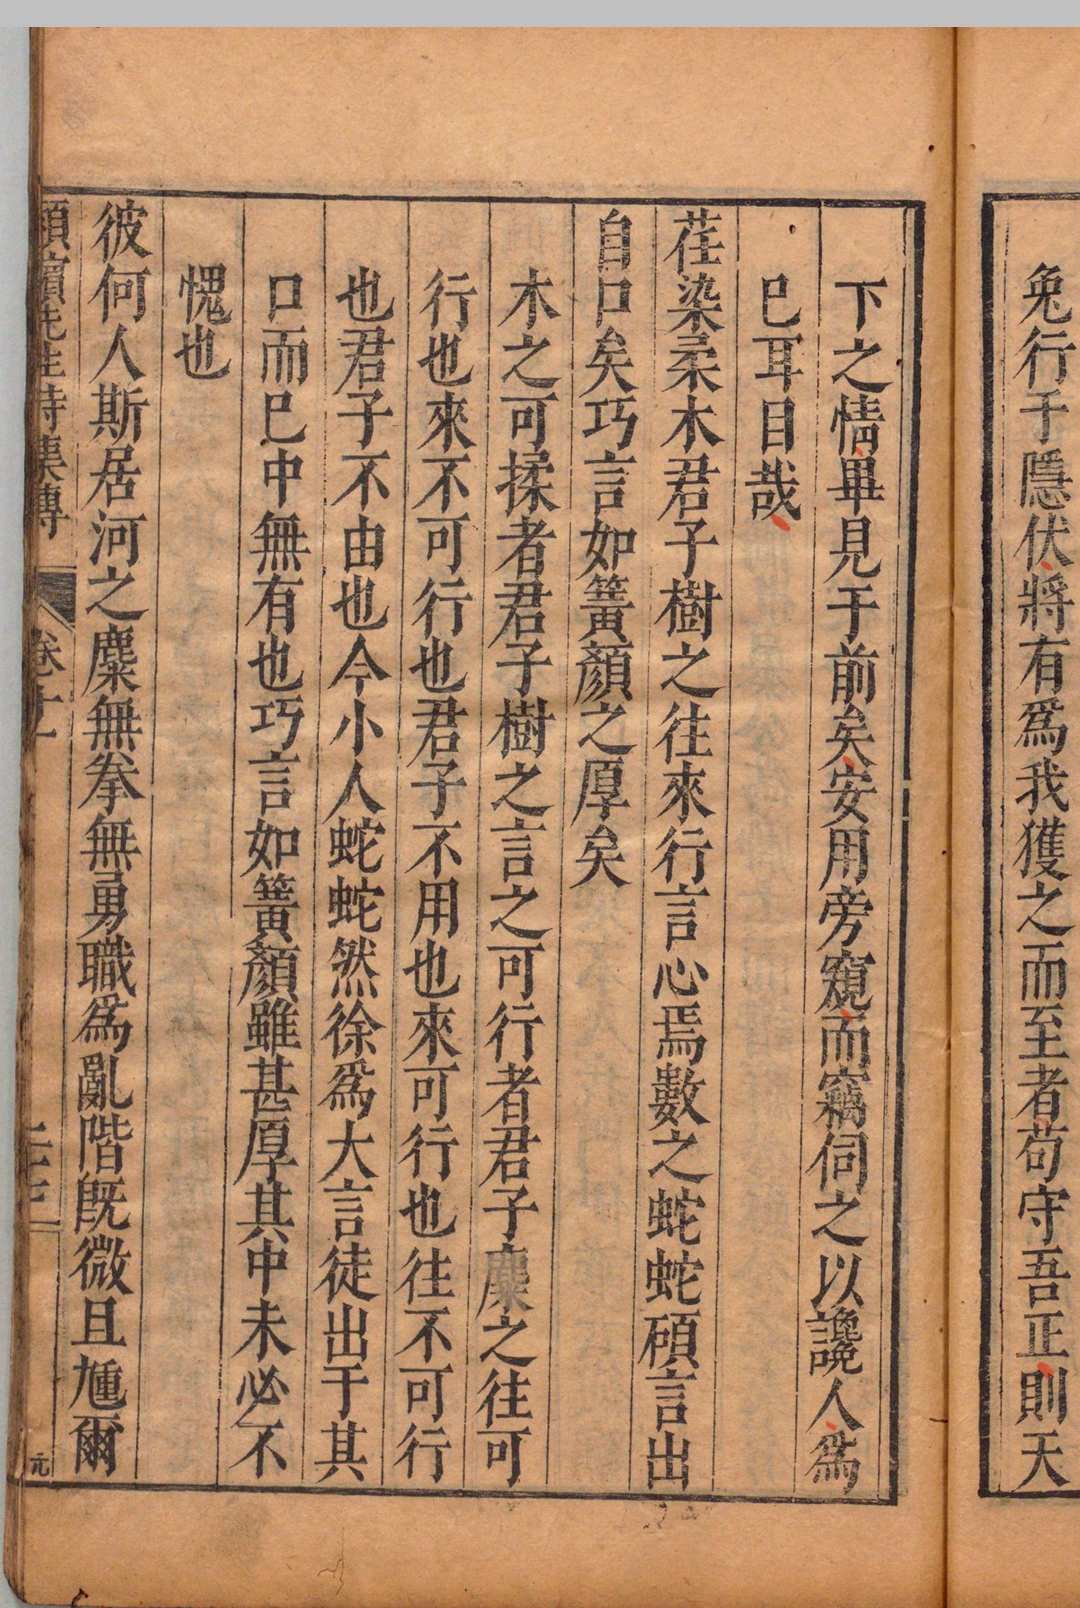 兔行于隱伏將有爲我獲之而至者苟守吾正則天
下之情畢見于前矣安用旁窺而竊伺之以讒人爲
巳耳目哉
荏染柔木君子樹之往來行言心焉數之蛇蛇碩言出
自口矣巧言如簧顏之厚矣
木之可揉者君子樹之言之可行者君子麋之往可
行也來不可行也君子不用也來可行也往不可行
也君子不由也今小人蛇蛇然徐爲大言徒出于其
口而巳中無有也巧言如簧顏雖甚厚其中未必不
愧也
彼何人斯居河之麋無拳無勇職爲亂階旣微且尰爾
潁濱先生詩集傳
卷十一
元